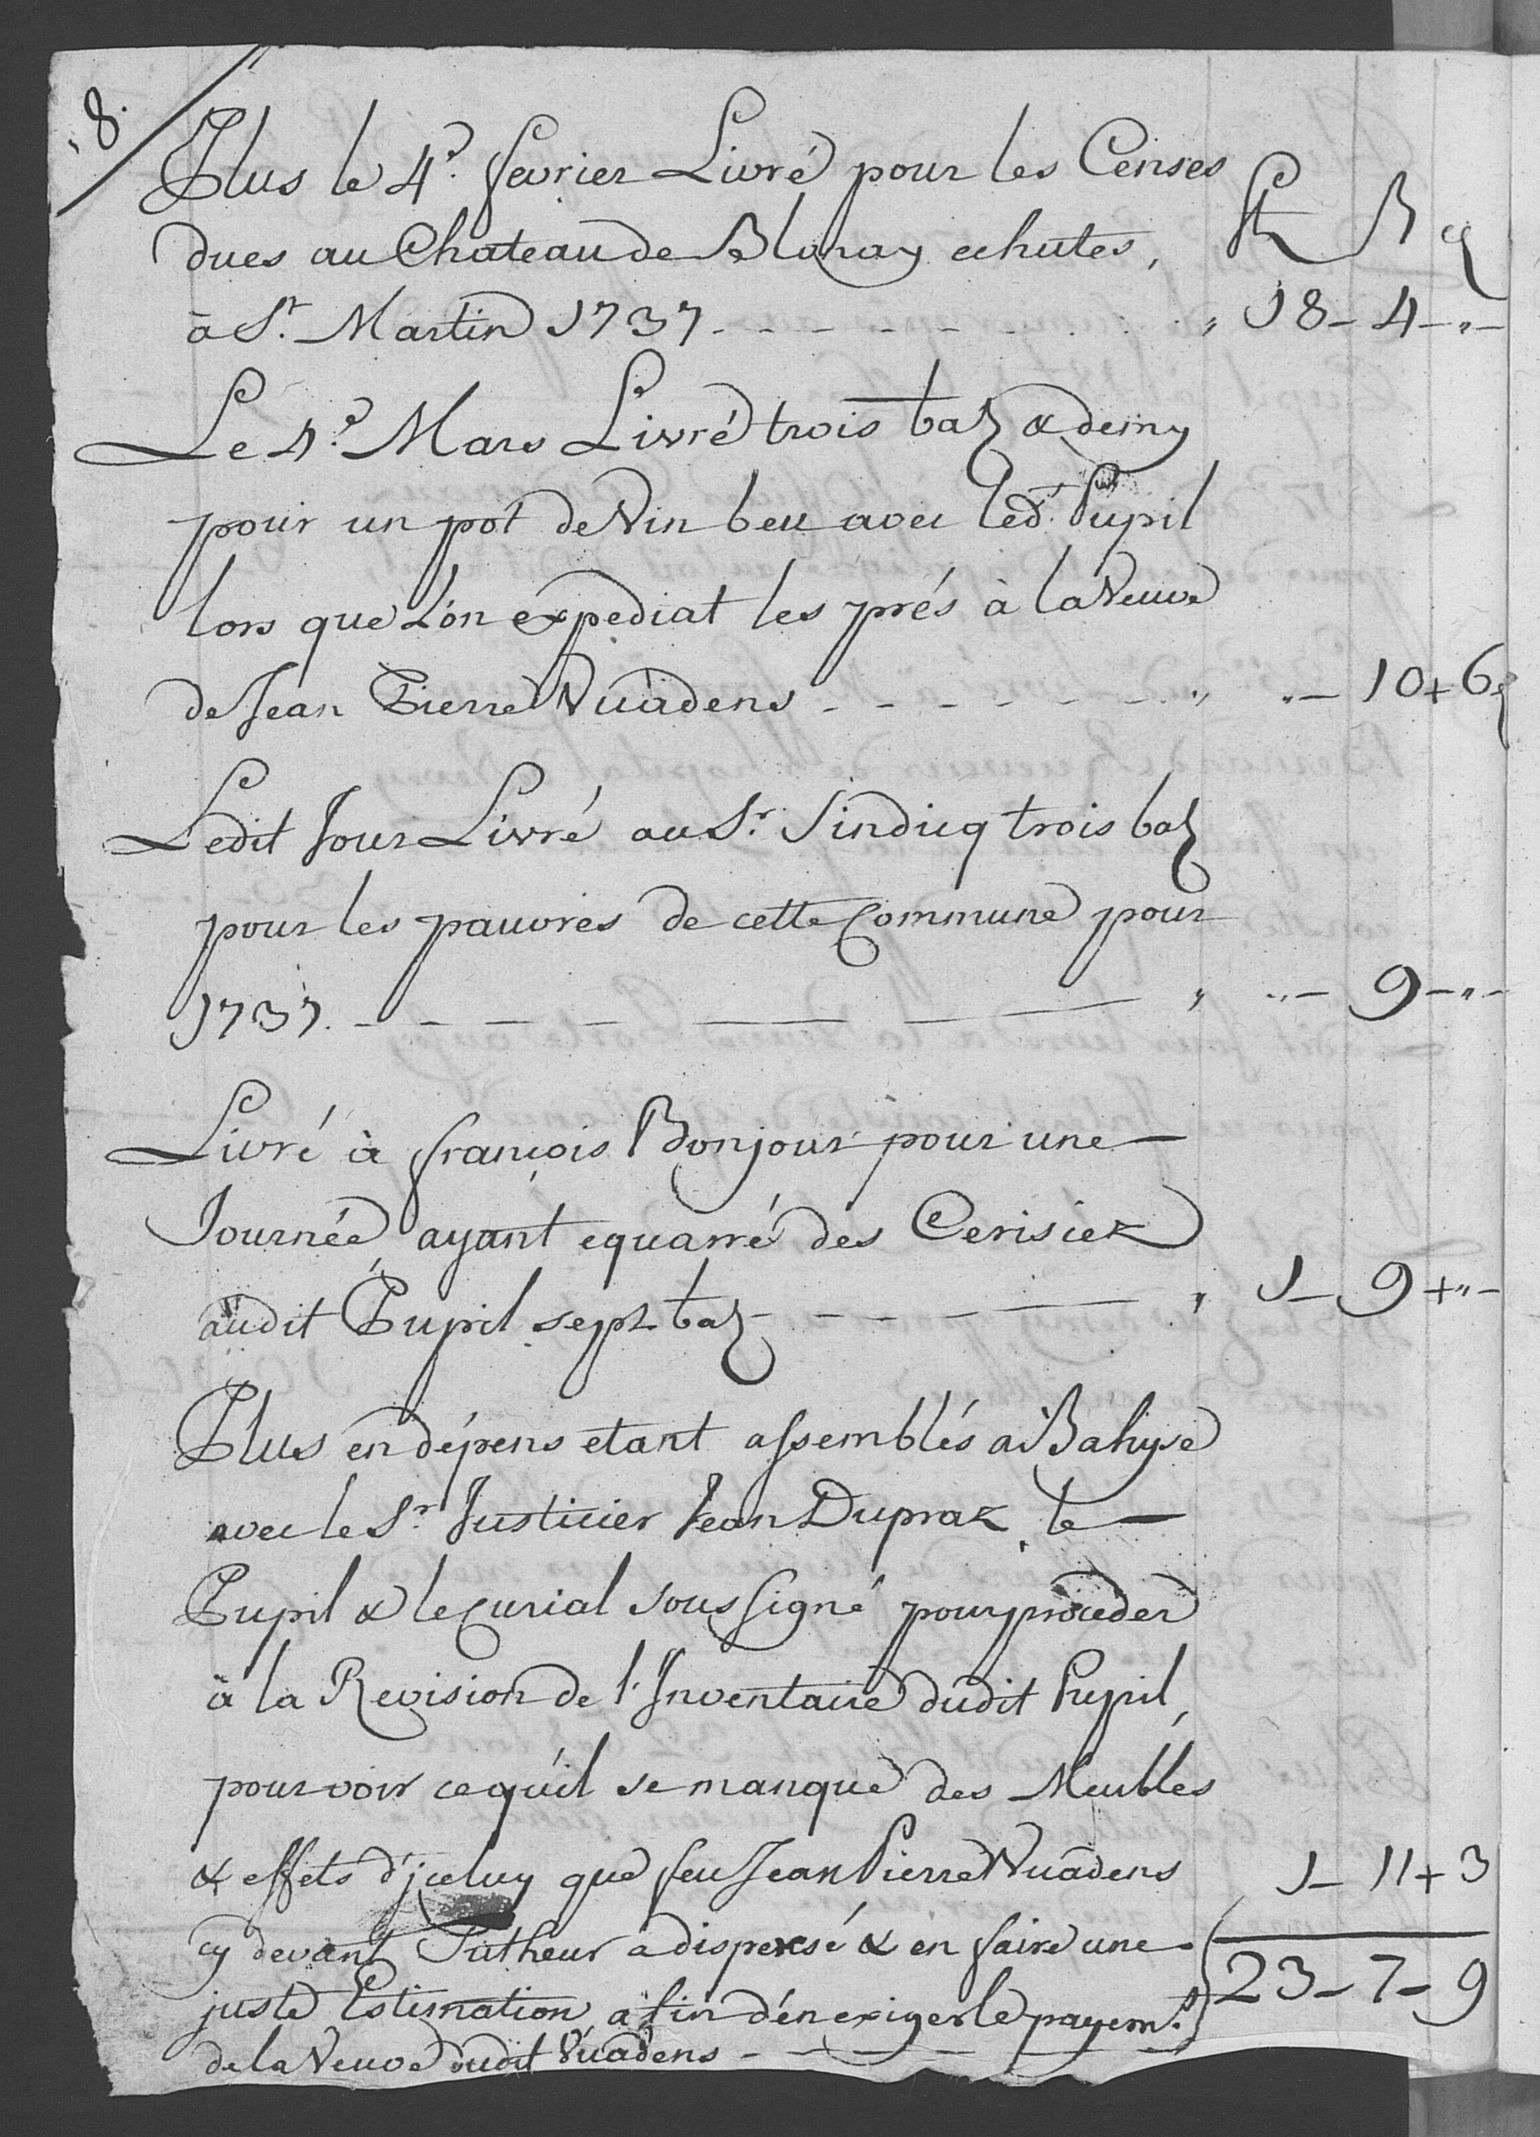 8.
Plus le 4.e fevrier Livré pour les Censes
dues au Chateau de Blonay echutes,
à St. Martin 1737 - - - - - - - , 18 - 4 - " -
Le 4.e Mars Livré trois batz & demy
pour un pot de Vin beu avec led.t Pupil
lors que L'on expediat les prés à la Veuve
de Jean Pierre Vuadens - - - - - - - " " - 10 + 6
Ledit Jour Livré au Sr. Sindicq trois batz
pour les pauvres de cette Commune pour
1737. - - - - - - - , " - 9 - " -
Livré à françois Bonjour pour une
Journée ayant equarré des Cerisiez
audit Pupil sept batz - - - - - , 1 - 9 + " -
Plus en dépens etant assemblés à Bahyse
avec le Sr. Justicier Jean Dupraz, le
Pupil & le Curial sous signé pour proceder
à la Revision de l'Inventaire dudit Pupil,
pour voir ce qu'il se manque des Meubles
& effets d'jceluy que feu Jean Pierre Vuadens 1 - 11 + 3
cy devant Tutheur a dispersé & en faire une
juste Estimation, afin d'én exiger le payem.t 23 - 7 - 9
de la Veuve dudit Vuadens - - - - -